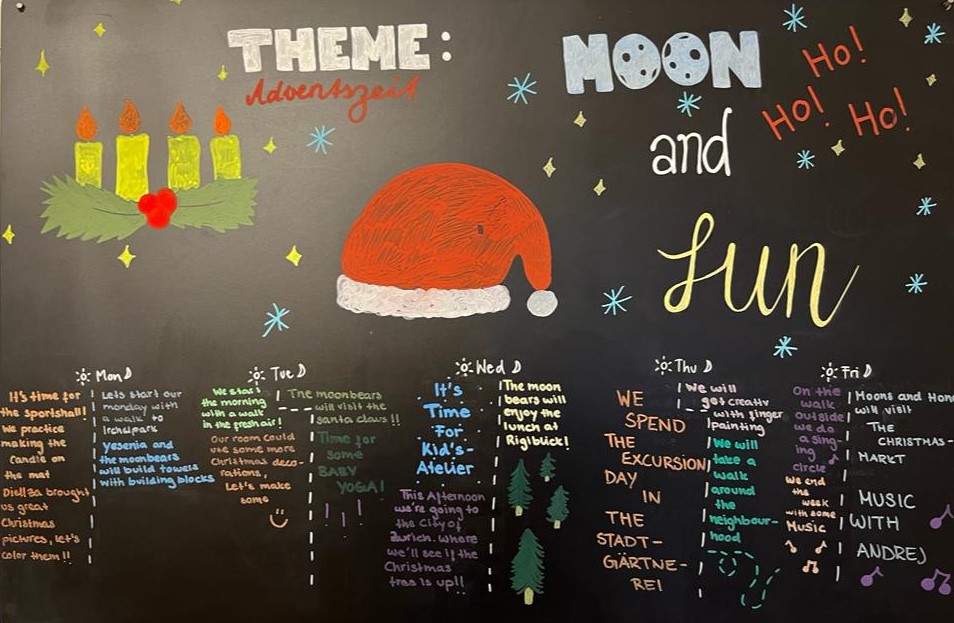 THEME:
Adventszeit
MOON
and
Sun
Ho!
Ho! Ho!
Mon
It's time for
the sportshall!
We practice
making the
Candle on
the mat
Diellza brought
us great
Christmas
pictures, let's
color them!!
Lets start our
monday with
a walk to
Irchelpark
Yesenia and
the moonbears
will build towers
with building blocks
Tue
We start
the morning
with a walk
in the fresh air!
Our room could
use some more
Christmas deco-
rations,
Let's make
some
The moonbears
will visit the
santa claus!!
Time for
some
BABY
YOGA!
Wed
It's
Time
For
Kid's-
Atelier
This Afternoon
we're going to
the City of
Zurich. where
we'll see if the
Christmas
tree is up!!
The moon
bears will
enjoy the
lunch at
Rigiblick!
Thu
WE
SPEND
THE
EXCURSION
DAY
IN
THE
STADT-
GÄRTNE-
REI
We will
get creativ
with finger
painting
We will
take a
walk
around
the
neighbour-
hood
Fri
On the
walk
outside
we do
a sing-
ing
circle
We end
the
week
with some
Music
Moons and Hono
will visit
THE
CHRISTMAS-
MARKT
MUSIC
WITH
ANDREJ